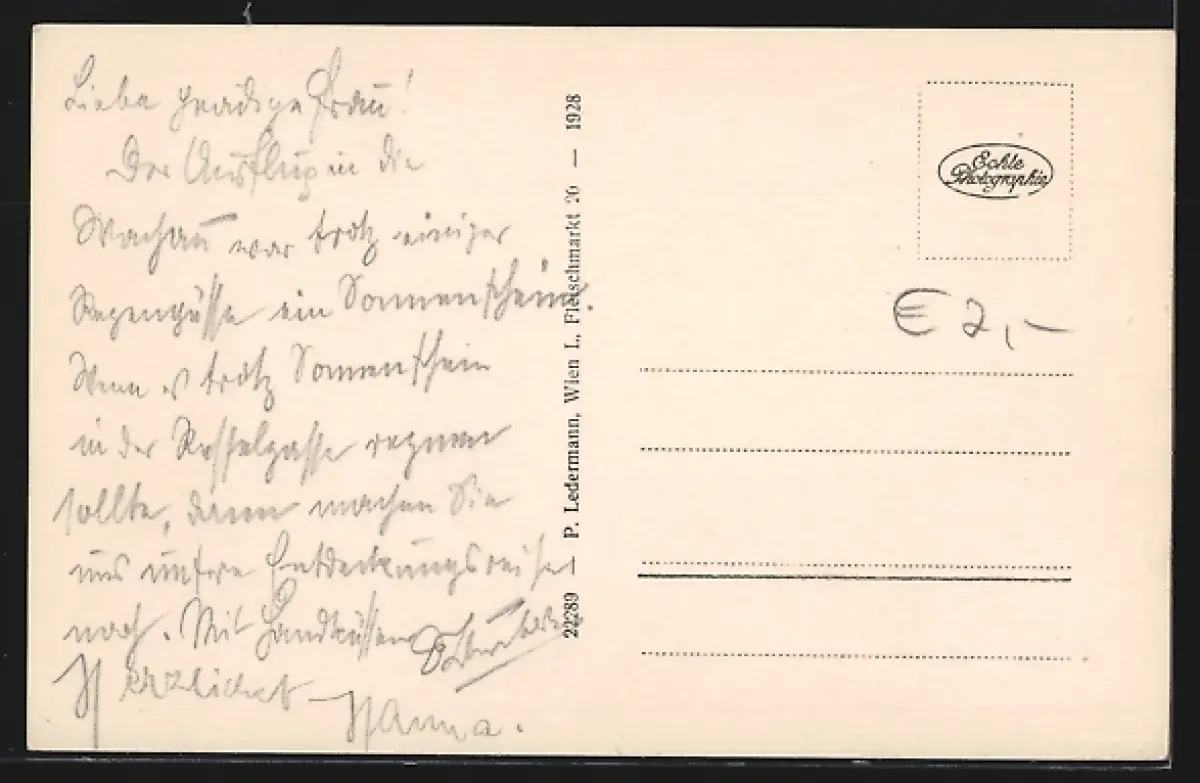 Liebe gnädige Frau!
Der Ausflug in die
Wachau war trotz einiger
Regengüsse ein Sonnenschein.
Wenn es trotz Sonnenschein
in der gasse regnen
sollte, dann machen Sie
uns unsere Entdeckungsreise
nach. Mit Handküssen
Herzlichst Hanna.
22289 — P. Ledermann, Wien I., Fleischmarkt 20 — 1928
Echte
Photographie
€ 2,-